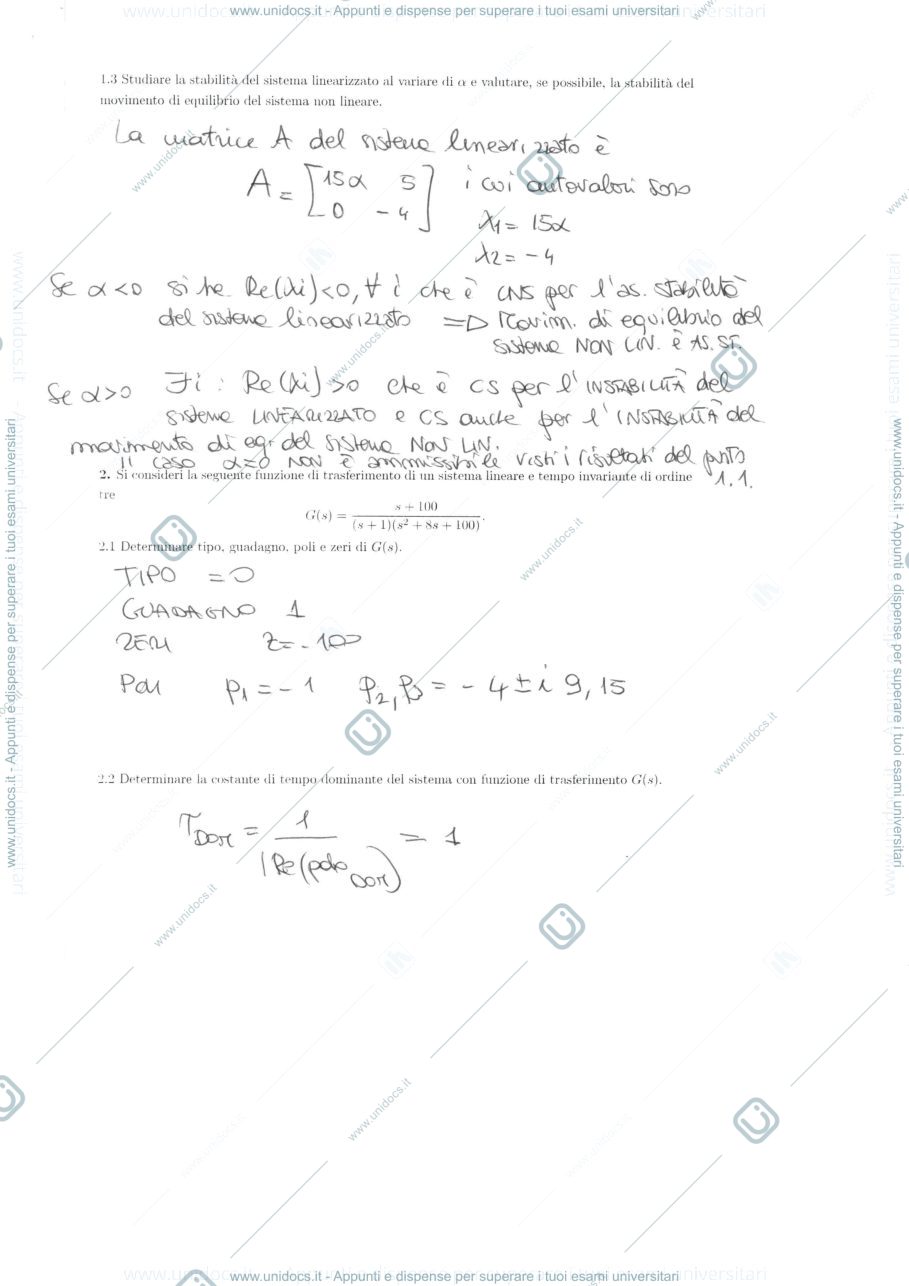 www.unidocs.it - Appunti e dispense per superare i tuoi esami universitari
1.3 Studiare la stabilità del sistema linearizzato al variare di α e valutare, se possibile, la stabilità del
movimento di equilibrio del sistema non lineare.
La matrice A del sistema linearizzato è
A = [15α 5
0 -4] i cui autovalori sono
λ1 = 15α
λ2 = -4
Se α<0 si ha Re(λi)<0, ∀ i che è CNS per l'as. stabilità
del sistema linearizzato => Movim. di equilibrio del
sistema NON LIN. è AS. ST.
Se α>0 ∃i : Re(λi)>0 che è CS per l'INSTABILITÀ del
sistema LINEARIZZATO e CS anche per l'INSTABILITÀ del
movimento di eq. del sistema NON LIN.
Il caso α=0 NON è ammissibile visti i risultati del punto
1.1.
2. Si consideri la seguente funzione di trasferimento di un sistema lineare e tempo invariante di ordine
tre
G(s) = (s + 100) / ((s + 1)(s² + 8s + 100)).
2.1 Determinare tipo, guadagno, poli e zeri di G(s).
TIPO = 0
GUADAGNO 1
ZERI z = -100
POLI p1 = -1 p2, p3 = -4 ± i 9,15
2.2 Determinare la costante di tempo dominante del sistema con funzione di trasferimento G(s).
TDOM = 1 / |Re(polo DOM) = 1
www.unidocs.it - Appunti e dispense per superare i tuoi esami universitari
www.unidocs.it - Appunti e dispense per superare i tuoi esami universitari
www.unidocs.it - Appunti e dispense per superare i tuoi esami universitari
www.unidocs.it
www.unidocs.it
www.unidocs.it
www.unidocs.it
www.unidocs.it
www.unidocs.it